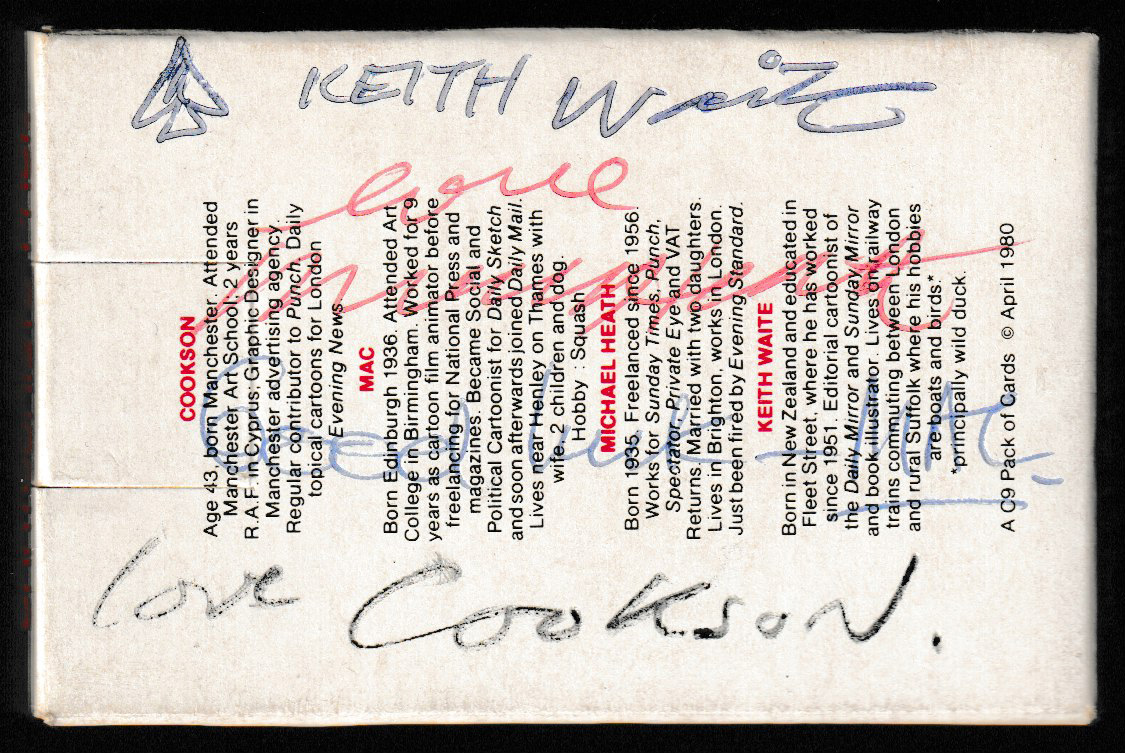 KEITH Waite
love
COOKSON
Age 43, born Manchester. Attended
Manchester Art School, 2 years
R.A.F. in Cyprus. Graphic Designer in
Manchester advertising agency.
Regular contributor to Punch. Daily
topical cartoons for London
Evening News.
MAC
Born Edinburgh 1936. Attended Art
College in Birmingham. Worked for 9
years as cartoon film animator before
freelancing for National Press and
magazines. Became Social and
Political Cartoonist for Daily Sketch
and soon afterwards joined Daily Mail.
Lives near Henley on Thames with
wife, 2 children and dog.
Hobby : Squash
MICHAEL HEATH
Born 1935. Freelanced since 1956.
Works for Sunday Times, Punch,
Spectator, Private Eye and VAT
Returns. Married with two daughters.
Lives in Brighton, works in London.
Just been fired by Evening Standard.
KEITH WAITE
Born in New Zealand and educated in
Fleet Street, where he has worked
since 1951. Editorial cartoonist of
the Daily Mirror and Sunday Mirror
and book illustrator. Lives on railway
trains commuting between London
and rural Suffolk where his hobbies
are boats and birds.*
*principally wild duck.
A C9 Pack of Cards © April 1980
Good luck – MAC.
love Cookson.